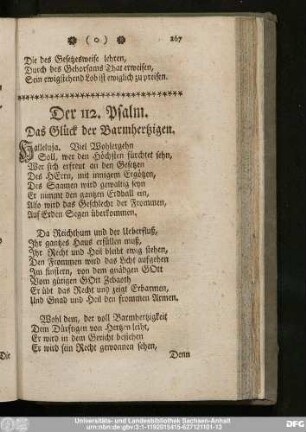 ( o ) 267
Die des Gesetzesweise lehren,
Durch des Gehorsams That erweisen,
Sein ewigstehend Lob ist ewiglich zu preisen.
Der 112. Psalm.
Das Glück der Barmhertzigen.
Halleluja. Viel Wohlergehn
Soll, wer den Höchsten fürchtet sehn,
Wer sich erfreut an den Gesetzen
Des HErrn, mit innigem Ergötzen,
Des Saamen wird gewaltig seyn
Er nimmt den gantzen Erdball ein,
Also wird das Geschlecht der Frommen,
Auf Erden Segen überkommen.
Da Reichthum und der Ueberfluß,
Ihr gantzes Haus erfüllen muß,
Ihr Recht und Heil bleibt ewig stehen,
Den Frommen wird das Licht aufgehen
Im finstern, von dem gnädgen GOtt
Vom gütigen GOtt Zebaoth
Er übt das Recht und zeigt Erbarmen,
Und Gnad und Heil den frommen Armen.
Wohl dem, der voll Barmhertzigkeit
Dem Dürftigen von Hertzen leiht,
Er wird in dem Gericht bestehen
Er wird sein Recht gewonnen sehen,
Denn
Die
Universitäts- und Landesbibliothek Sachsen-Anhalt
urn:nbn:de:gbv:3:1-1192015415-627121101-13
DFG